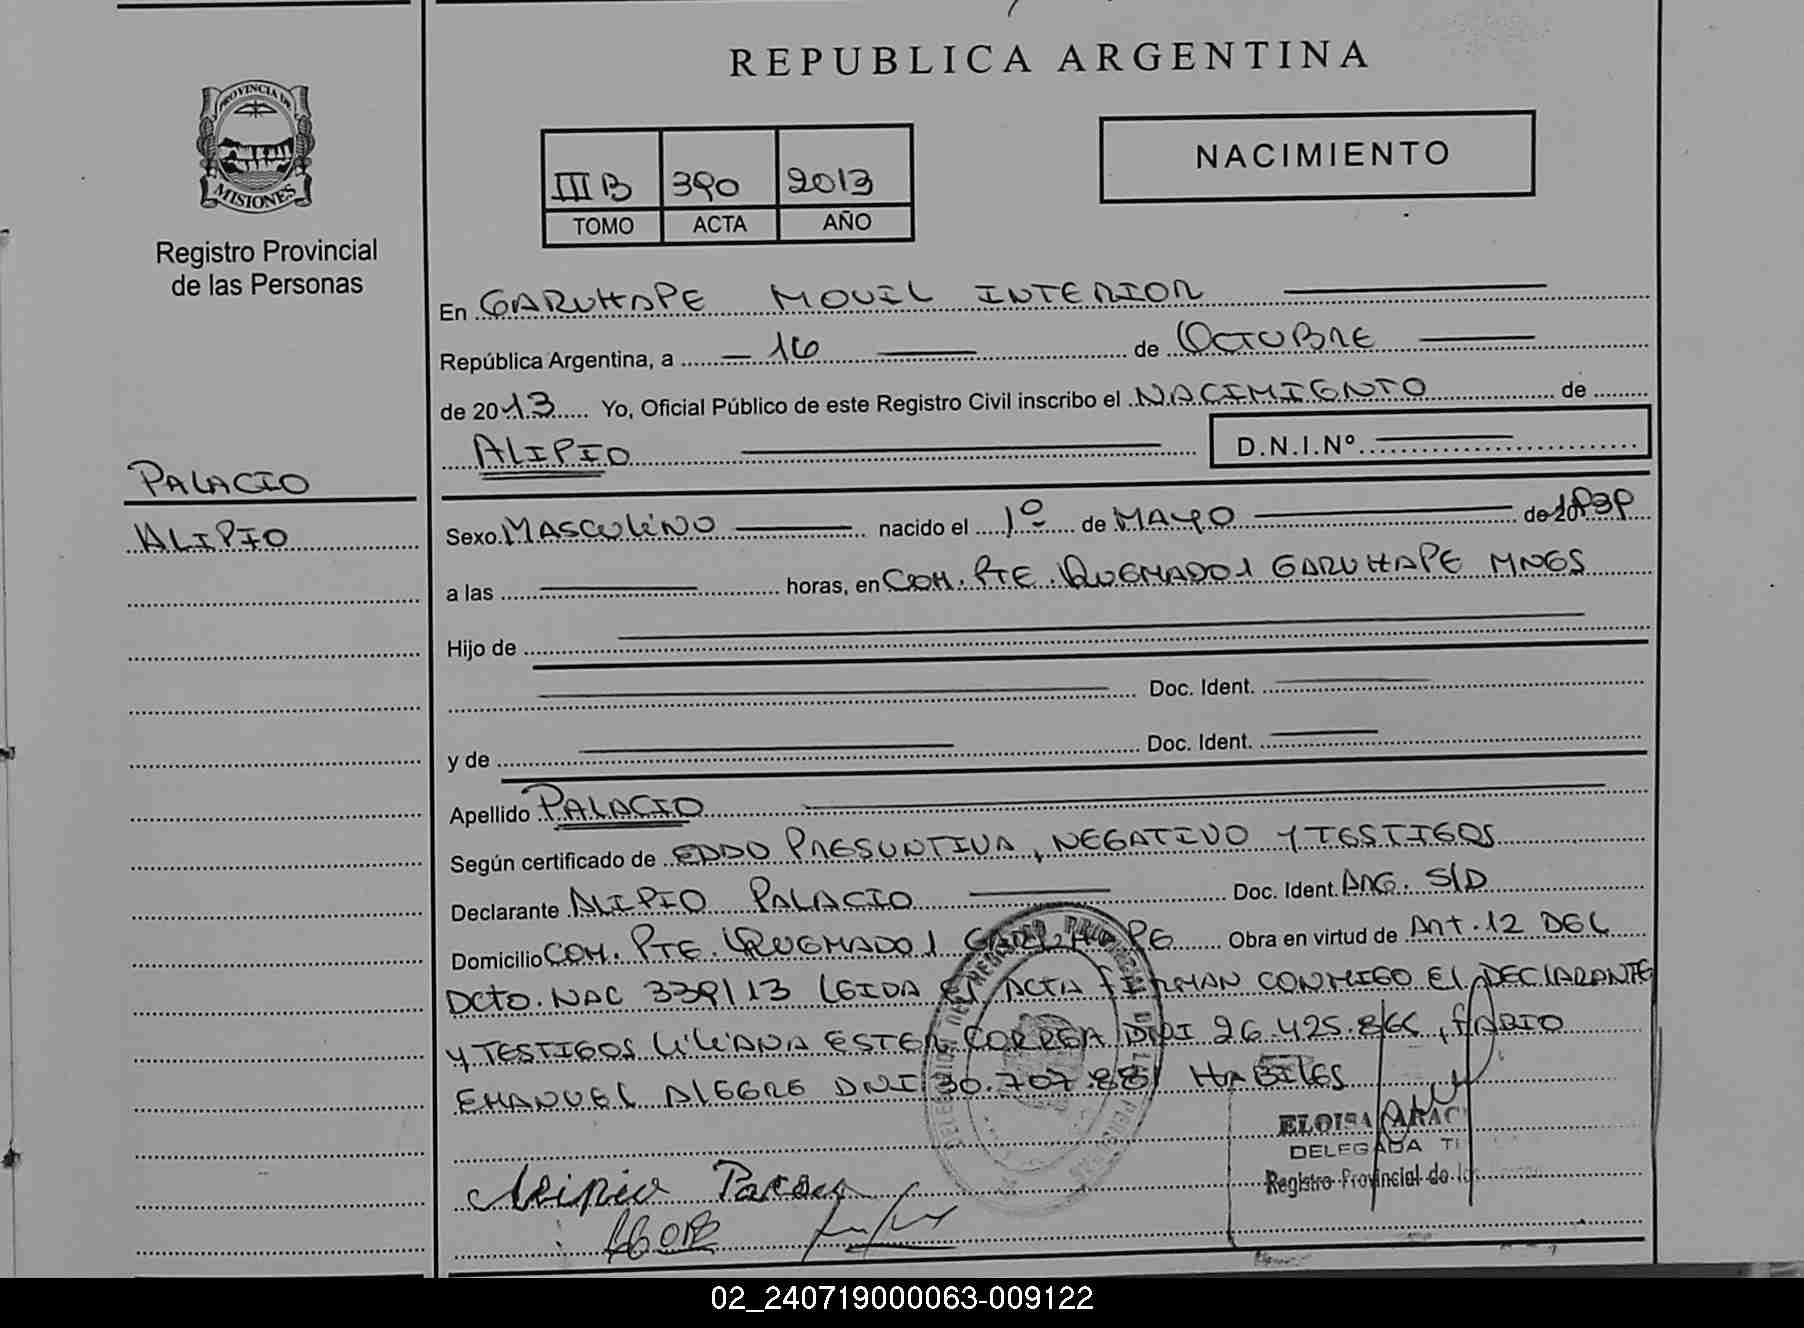 REPUBLICA ARGENTINA
PROVINCIA DE
MISIONES
Registro Provincial
de las Personas
NACIMIENTO
III B 390 2013
TOMO ACTA AÑO
En GARUHAPE MOVIL INTERIOR
República Argentina, a 16 de OCTUBRE
de 2013 Yo, Oficial Público de este Registro Civil inscribo el NACIMIENTO de
ALIPIO D.N.I.Nº
PALACIO
ALIPIO
Sexo MASCULINO nacido el 1º de MAYO de
a las horas, en COM. PTE. QUEMADO 1 GARUHAPE MNES
Hijo de
Doc. Ident.
y de Doc. Ident.
Apellido PALACIO
Según certificado de EDDO PRESUNTIVA, NEGATIVO Y TESTIGOS
Declarante ALIPIO PALACIO Doc. Ident. ARG. S/D
Domicilio COM. PTE. QUEMADO 1 GARUHAPE Obra en virtud de ART. 12 DEL
DCTO. NAC 339/13 LEIDA EL ACTA FIRMAN CONMIGO EL DECLARANTE
Y TESTIGOS LILIANA ESTER CORREA DNI 26.425.866, FABIO
EMANUEL ALEGRE DNI 30.707.881 HABILES
ELOISA
DELEGADA
Registro Provincial de
Alipio
02_240719000063-009122